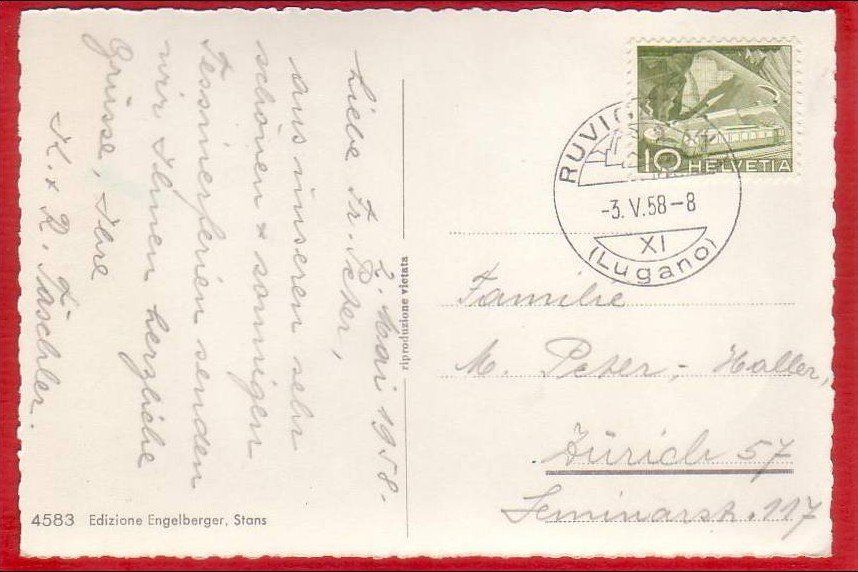 2. Mai 1958.
Liebe Fr. Peter,
aus unseren sehr
schönen + sonnigen
Tessinerferien senden
wir Ihnen herzliche
Grüsse, Ihre
K. + R. Täschler.
4583 Edizione Engelberger, Stans
riproduzione vietata
10 HELVETIA
RUVIG
-3.V.58-8
XI
(Lugano)
Familie
M. Peter-Haller,
Zürich 57
Seminarstr. 117